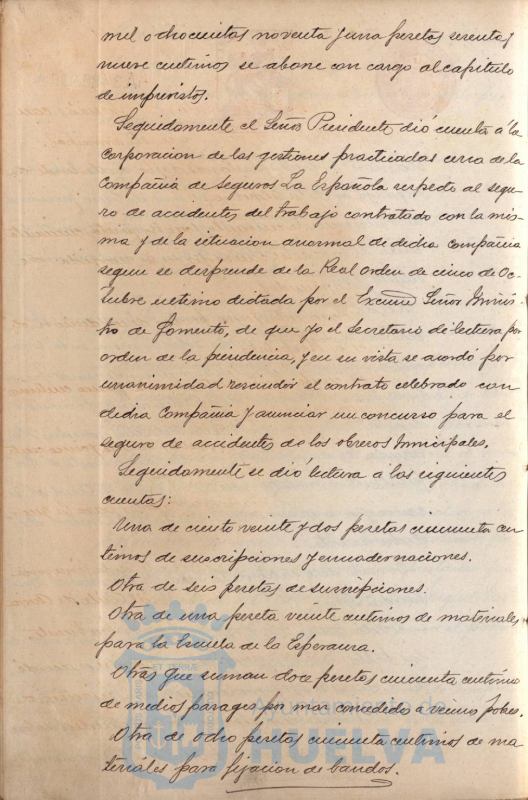 mil ochocientas noventa y una pesetas sesenta y
nueve centimos se abone con cargo al capitulo
de imprevistos.
Seguidamente el Señor Presidente dió cuenta á la
Corporacion de las gestiones practicadas cerca de la
Compañia de Seguros La Española respecto al segu-
ro de accidentes del trabajo contratado con la mis-
ma y de la situacion anormal de dicha Compañia
segun se desprende de la Real orden de cinco de Oc-
tubre ultimo dictada por el Excmo Señor Minis-
tro de Fomento, de que yo el Secretario di lectura por
orden de la presidencia, y en su vista se acordó por
unanimidad rescindir el contrato celebrado con
dicha Compañia y anunciar un concurso para el
seguro de accidentes de los obreros Municipales.
Seguidamente se dió lectura á las siguientes
cuentas:
Una de ciento veinte y dos pesetas cincuenta cen
timos de suscripciones y encuadernaciones.
Otra de seis pesetas de suscripciones.
Otra de una peseta veinte centimos de materiales
para la Escuela de la Esperanza.
Otras que suman doce pesetas cincuenta centimos
de medios pasages por mar concedido a vecino pobre.
Otra de ocho pesetas cincuenta centimos de ma-
teriales para fijacion de bandos.
Ayuntamiento de
HUELVA